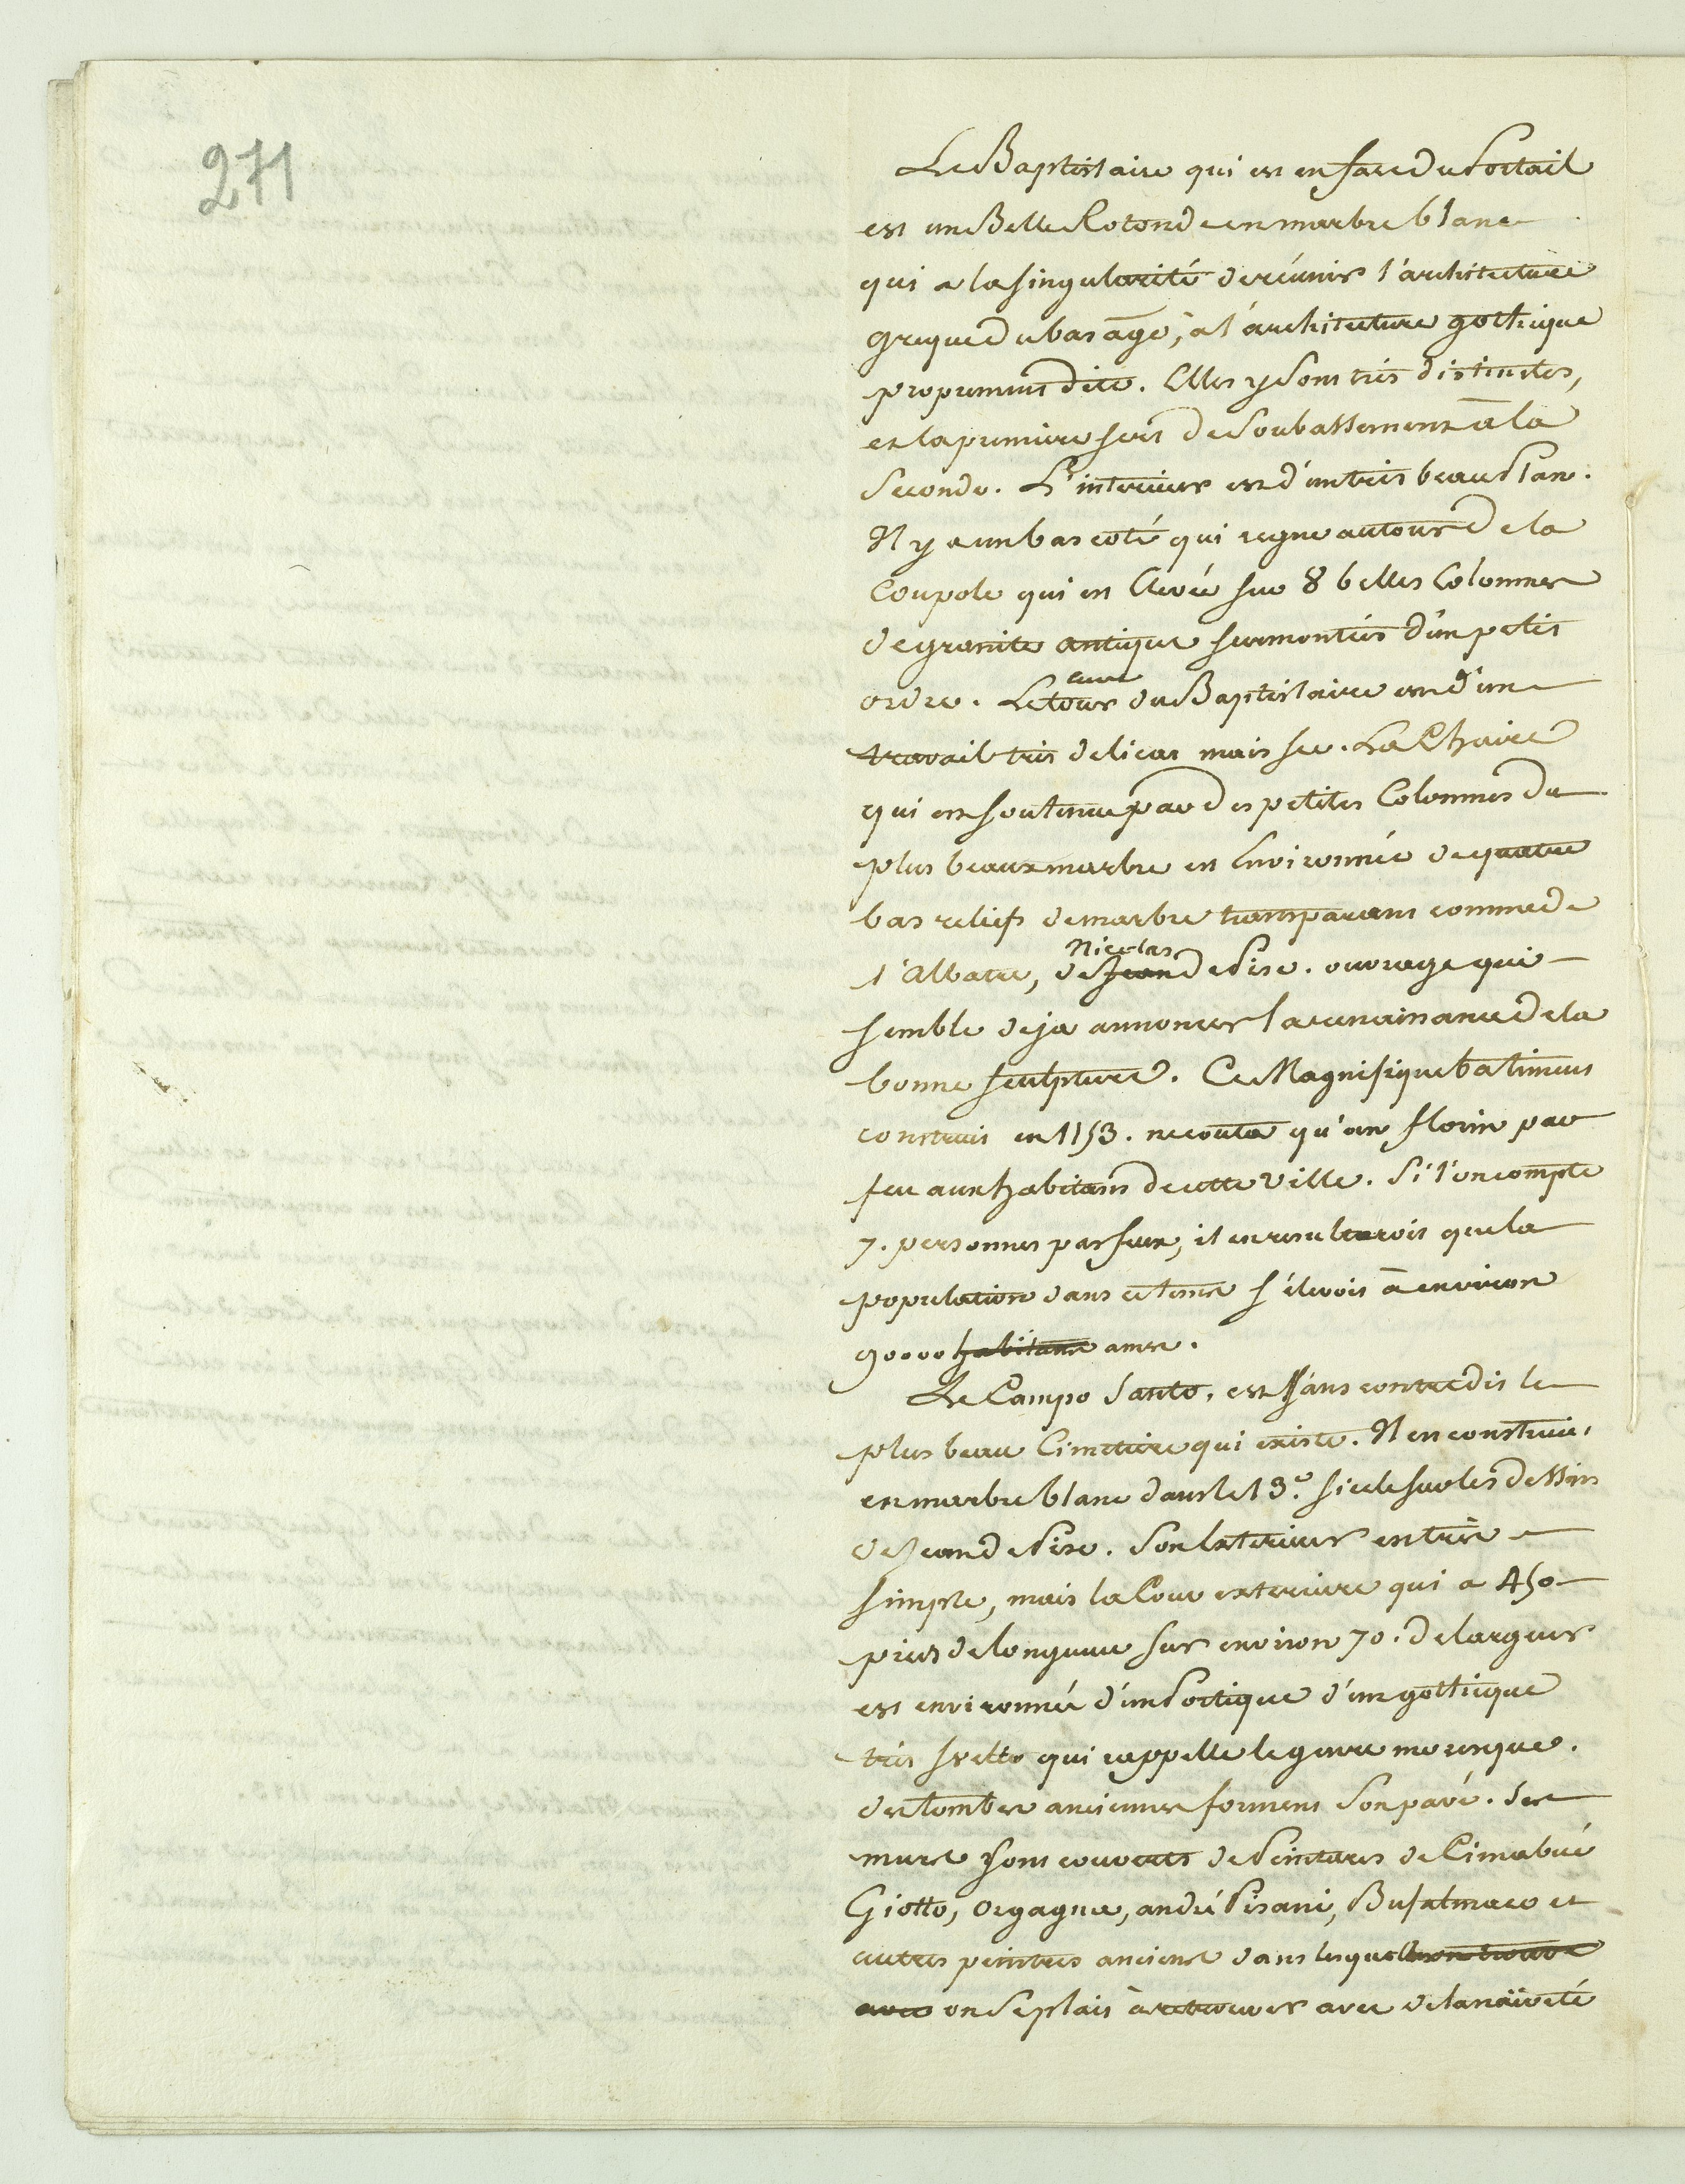 271
Le Baptistaire qui est en face du Portail
est une Belle Rotonde en marbre blanc
qui a la singularité de réunir l'architecture
greque du bas âge, à l'architecture gothique
proprement dite. Elles y sont très distinctes,
et la premiere sert de Soubassement à la
Seconde. L'interieur est d'un très beau Plan.
Il y a un bas coté qui regne autour de la
Coupole qui est Elevée sur 8 belles Colonnes
de granite antique surmontées d'un petit
ordre. Le tour du Baptistaire est d'un
cuve
travail très delicat mais sec. La Chaire
qui est soutenue par des petites Colonnes du
plus beaux marbre est Environnée de quatre
bas reliefs de marbre transparent comme de
l'Albatre, de Jean de Pise. ouvrage qui
Nicolas
semble deja annoncer la renaissance de la
bonne sculpture. Ce Magnifique batiment
construit en 1153. ne couta qu'un florin par
feu aux habitans de cette Ville. Si l'on compte
7. personnes par feux, il en resulteroit que la
population dans ce tems s'élevoit à environ
90000 habitans ames.
Le Campo Santo, est sans contredit le
plus beau Cimetiere qui existe. Il est construit,
en marbre blanc dans le 13.e siecle sur les dessins
de Jean de Pise. Son Interieur est très
simple, mais la Cour exterieure qui a 450
pieds de longueur sur environ 70. de largeur
est environnée d'un Portique d'un gothique
très svelte qui rappelle le genre moresque.
des tombes anciennes forment Son pavé. Ses
murs sont couverts de Peintures de Cimabué
Giotto, Orgagna, andré Pisani, Bufalmaco et
autres peintres anciens dans lesquels on trouve
avec on se plait à retrouver avec de la naïveté